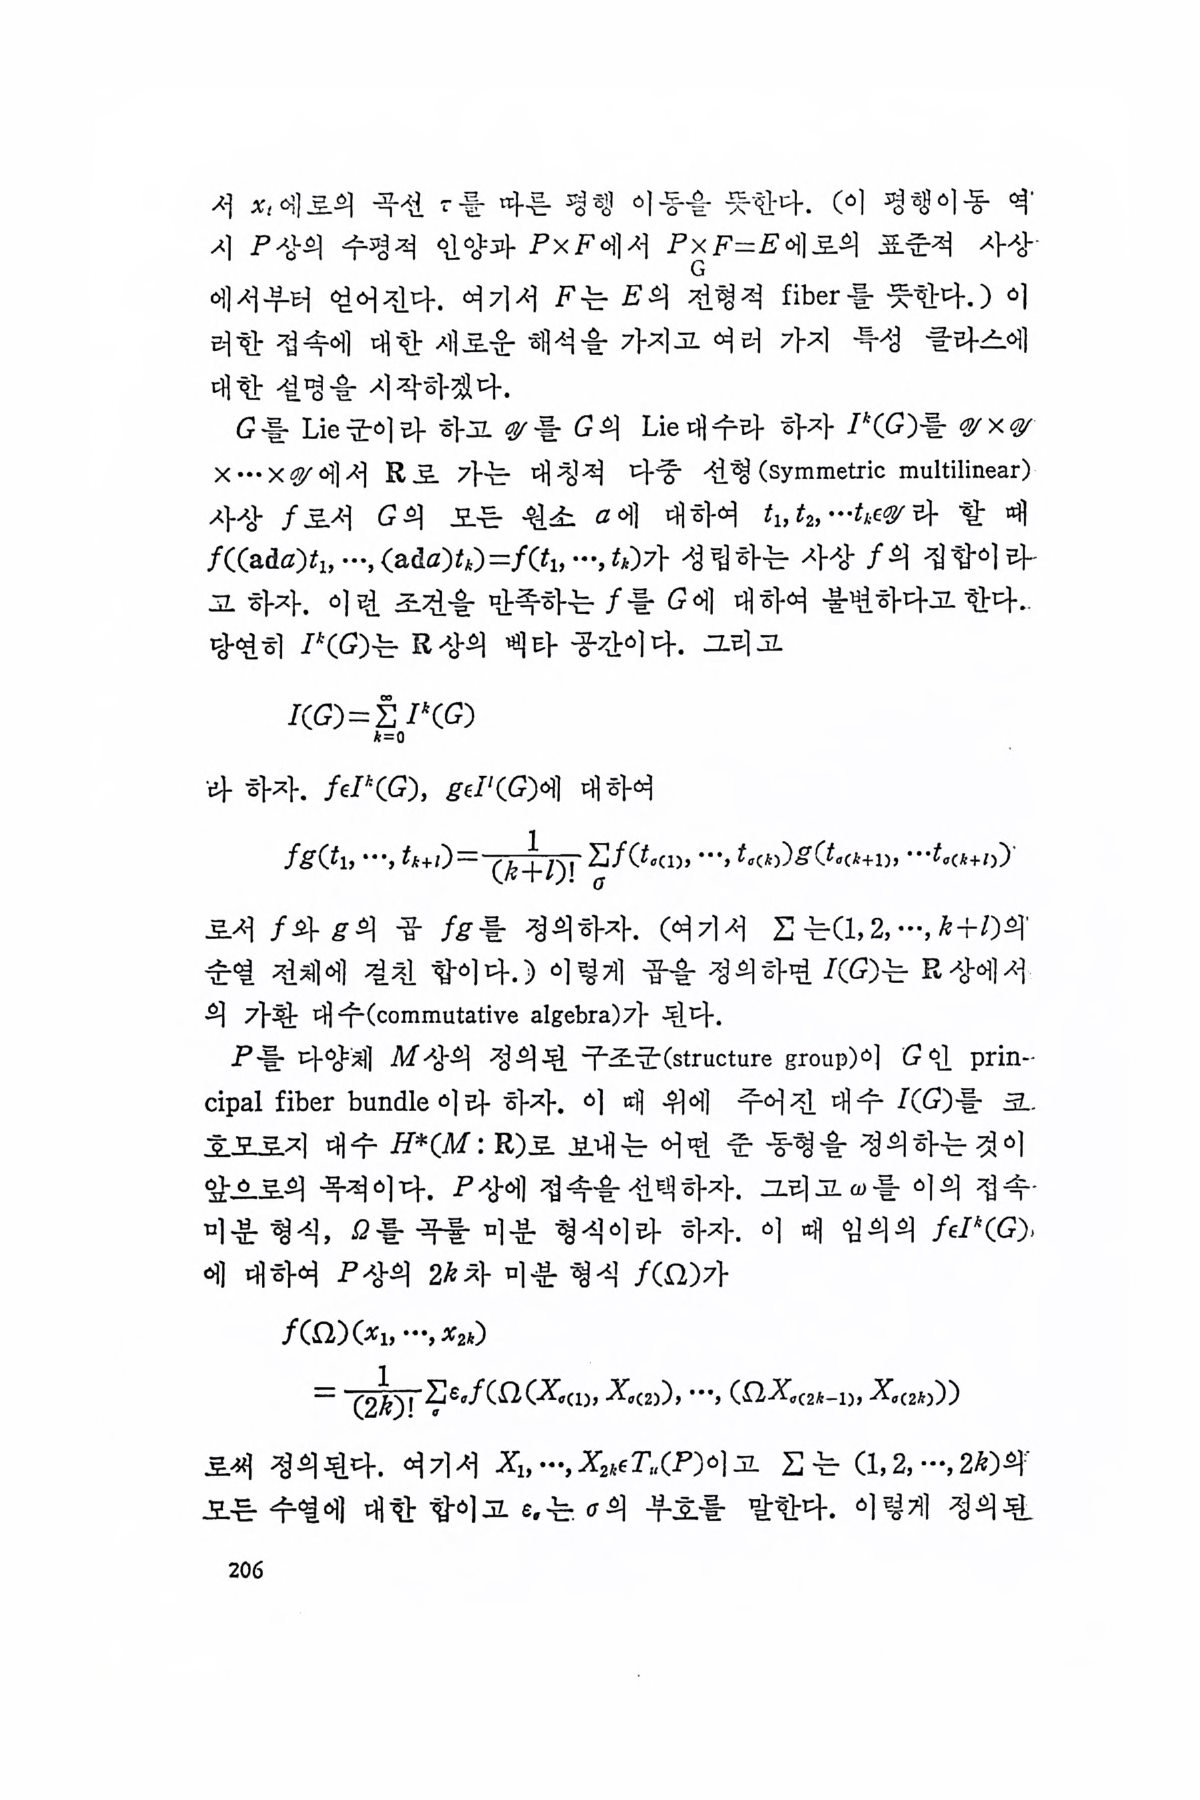 서 xₜ에로의 곡선 τ를 따른 평행 이동을 뜻한다. (이 평행이동 역
시 P상의 수평적 인양과 P×F에서 P×F=E에로의 표준적 사상
G
에서부터 얻어진다. 여기서 F는 E의 전형적 fiber를 뜻한다.) 이
러한 접속에 대한 새로운 해석을 가지고 여러 가지 특성 클라스에
대한 설명을 시작하겠다.
G를 Lie군이라 하고 𝒴를 G의 Lie대수라 하자 Iᵏ(G)를 𝒴×𝒴
×···×𝒴에서 R로 가는 대칭적 다중 선형(symmetric multilinear)
사상 f로서 G의 모든 원소 a에 대하여 t₁, t₂, ···tₖϵ𝒴라 할 때
f((ada)t₁, ···, (ada)tₖ)=f(t₁, ···, tₖ)가 성립하는 사상 f의 집합이라
고 하자. 이런 조건을 만족하는 f를 G에 대하여 불변하다고 한다.
당연히 Iᵏ(G)는 R상의 벡타 공간이다. 그리고
I(G)=∑_{k=0}^{∞} Iᵏ(G)
라 하자. fϵIᵏ(G), gϵIˡ(G)에 대하여
fg(t₁, ···, t_{k+l})=\frac{1}{(k+l)!} ∑_{σ} f(t_{σ(1)}, ···, t_{σ(k)})g(t_{σ(k+1)}, ···t_{σ(k+l)})
로서 f와 g의 곱 fg를 정의하자. (여기서 ∑는(1, 2, ···, k+l)의
순열 전체에 걸친 합이다.) 이렇게 곱을 정의하면 I(G)는 R상에서
의 가환 대수(commutative algebra)가 된다.
P를 다양체 M상의 정의된 구조군(structure group)이 G인 prin-
cipal fiber bundle이라 하자. 이 때 위에 주어진 대수 I(G)를 코
호모로지 대수 H*(M : R)로 보내는 어떤 준 동형을 정의하는 것이
앞으로의 목적이다. P상에 접속을 선택하자. 그리고 ω를 이의 접속
미분 형식, Ω를 곡률 미분 형식이라 하자. 이 때 임의의 fϵIᵏ(G)
에 대하여 P상의 2k차 미분 형식 f(Ω)가
f(Ω)(x₁, ···, x₂ₖ)
=\frac{1}{(2k)!} ∑_{σ} ε_{σ}f(Ω(X_{σ(1)}, X_{σ(2)}), ···, (ΩX_{σ(2k−1)}, X_{σ(2k)}))
로써 정의된다. 여기서 X₁, ···, X₂ₖϵTᵤ(P)이고 ∑는 (1, 2, ···, 2k)의
모든 수열에 대한 합이고 ε_{σ}는 σ의 부호를 말한다. 이렇게 정의된
206